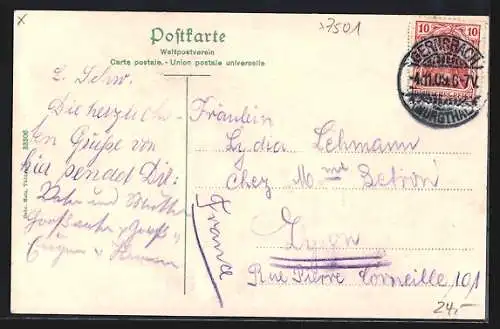 x
>7501
Postkarte
Weltpostverein
Carte postale. - Union postale universelle
10 10
GERNSBACH
4.11.09.6-7V.
(MURGTHAL)
L. Schw.
Die herzlich-
sten Grüße von
hier sendet Dir:
Vater und Mutter
Großvater, Groß
Eugen u.
Fräulein
Lydia Lehmann
Chez Mme
Lyon
Rue Pierre Corneille 101
France
24,-